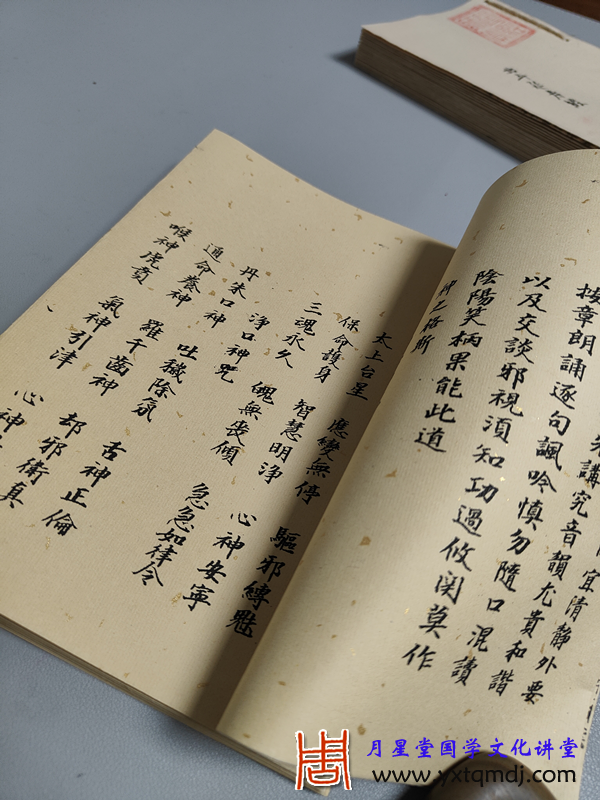 宜清靜外要
先講究音韻尤貴和諧
按章朗誦逐句諷唫慎勿隨口混讀
以及交談邪視須知功過攸関莫作
陰陽笑柄果能此道
神之格斯
太上台星 應變無停 驅邪縛魅
保命護身 智慧明淨 心神安寧
三魂永久 魄無喪傾 急急如律令
淨口神咒
丹朱口神 吐穢除氛 舌神正倫
通命養神 羅千齒神 却邪衛真
喉神虎賁 氣神引津 心神
月星堂国学文化讲堂
www.yxtqmdj.com